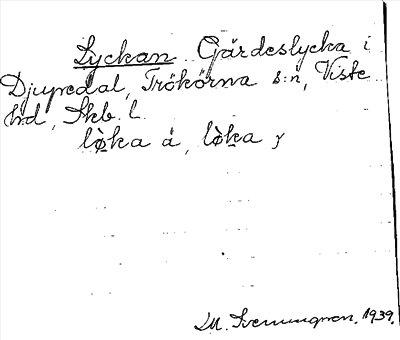 Lyckan Gärdeslycka i
Djupedal, Trökörna s:n, Viste
hd, Skb. l.
lø̀ka å, lø̀ka
M. Svenungson. 1939.